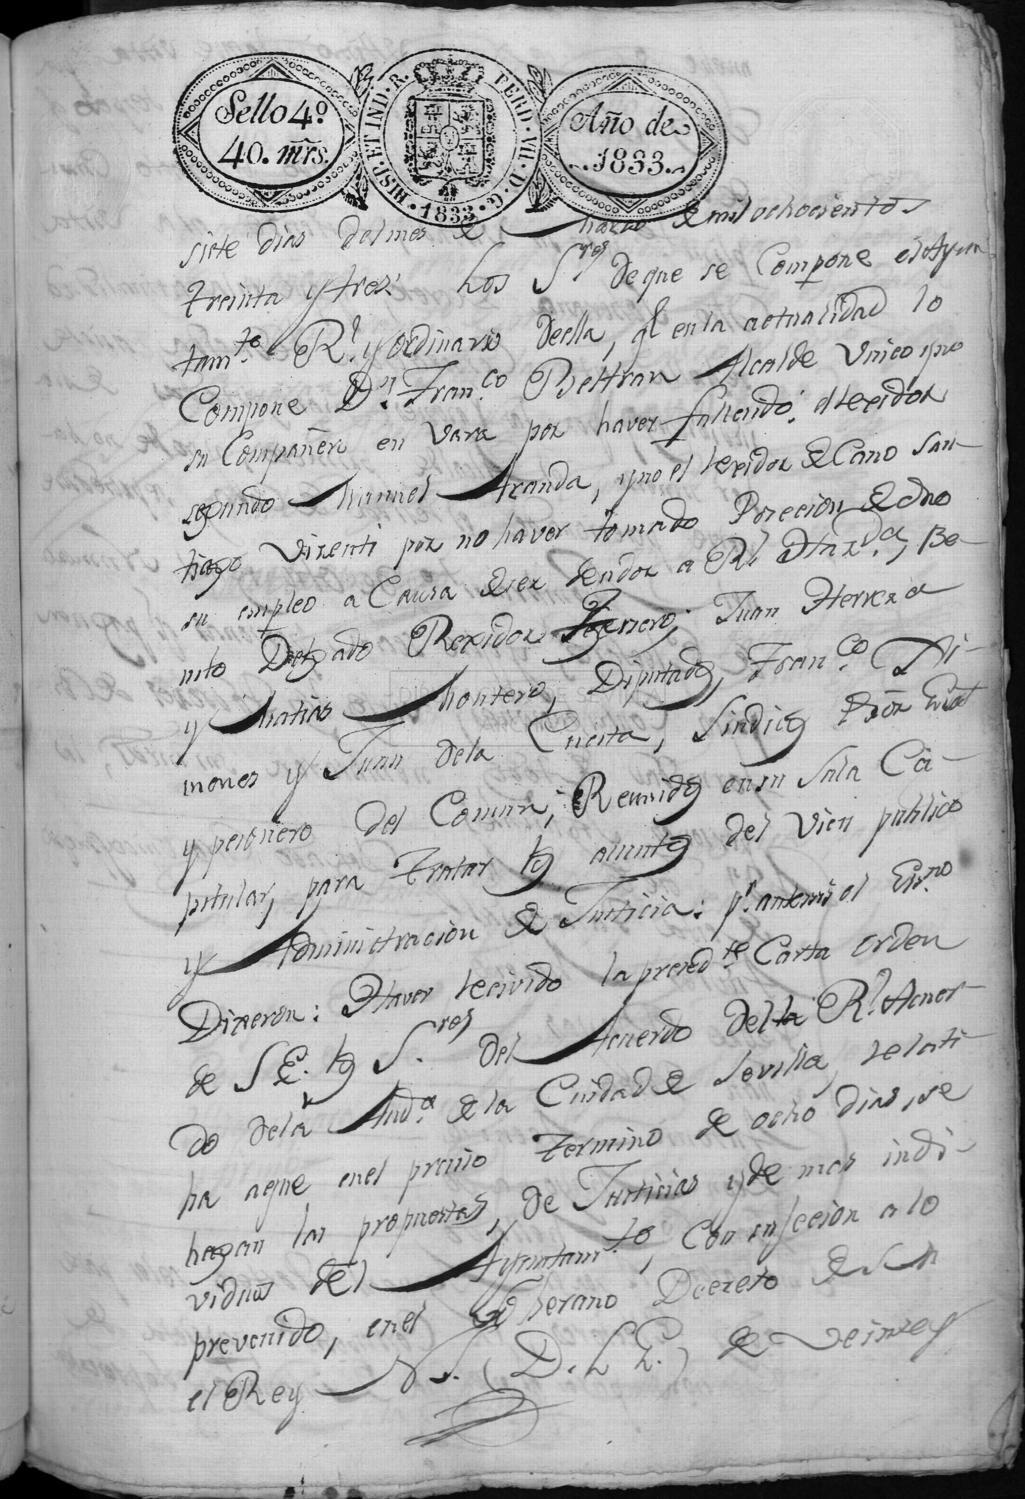 Sello 4º
40. mrs.
HISP. ET IND. R. FERD. VII. D. G.
1833
Año de
1833.
siete dias del mes de Marzo de mil ochocientos
treinta y tres: Los S.res de que se Compone el Ayun
tam.to R.l y ordinario de ella, q.e en la actualidad lo
Compone D.n Fran.co Beltran Alcalde Unico y no
su Compañero en Vara por haver fallecido: el rexidor
segundo Manuel Aranda, y no el rexidor Decano San-
tiago Vizenti por no haver tomado Posecion de dho
su empleo a Causa de ser deudor a R.l Haz.da, Be-
nito Delgado Rexidor Tersero; Juan Herrera
y Matias Montero, Diputados, Fran.co Xi-
menes y Juan de la Cuesta, Sindicos Pror Gral
y personero del Comun; Reunidos en su Sala Ca-
pitular, para tratar los asuntos del Vien publico
y Administracion de Justicia: p.r ante mi el Es.no
Dixeron: Haver recivido la preced.te Carta orden
de S E. los S.res del Acuerdo de la R.l Acuer-
do de la Aud.a de la Ciudad de Sevilla, relati-
ha aque en el preciso termino de ocho dias, se
hagan las propuestas, de Justicias y de mas indi-
viduos del Ayuntam.to, Con sugecion a lo
prevenido, en el Soberano Decreto de S M
el Rey N. S. (D. L. G.) de Veinte y